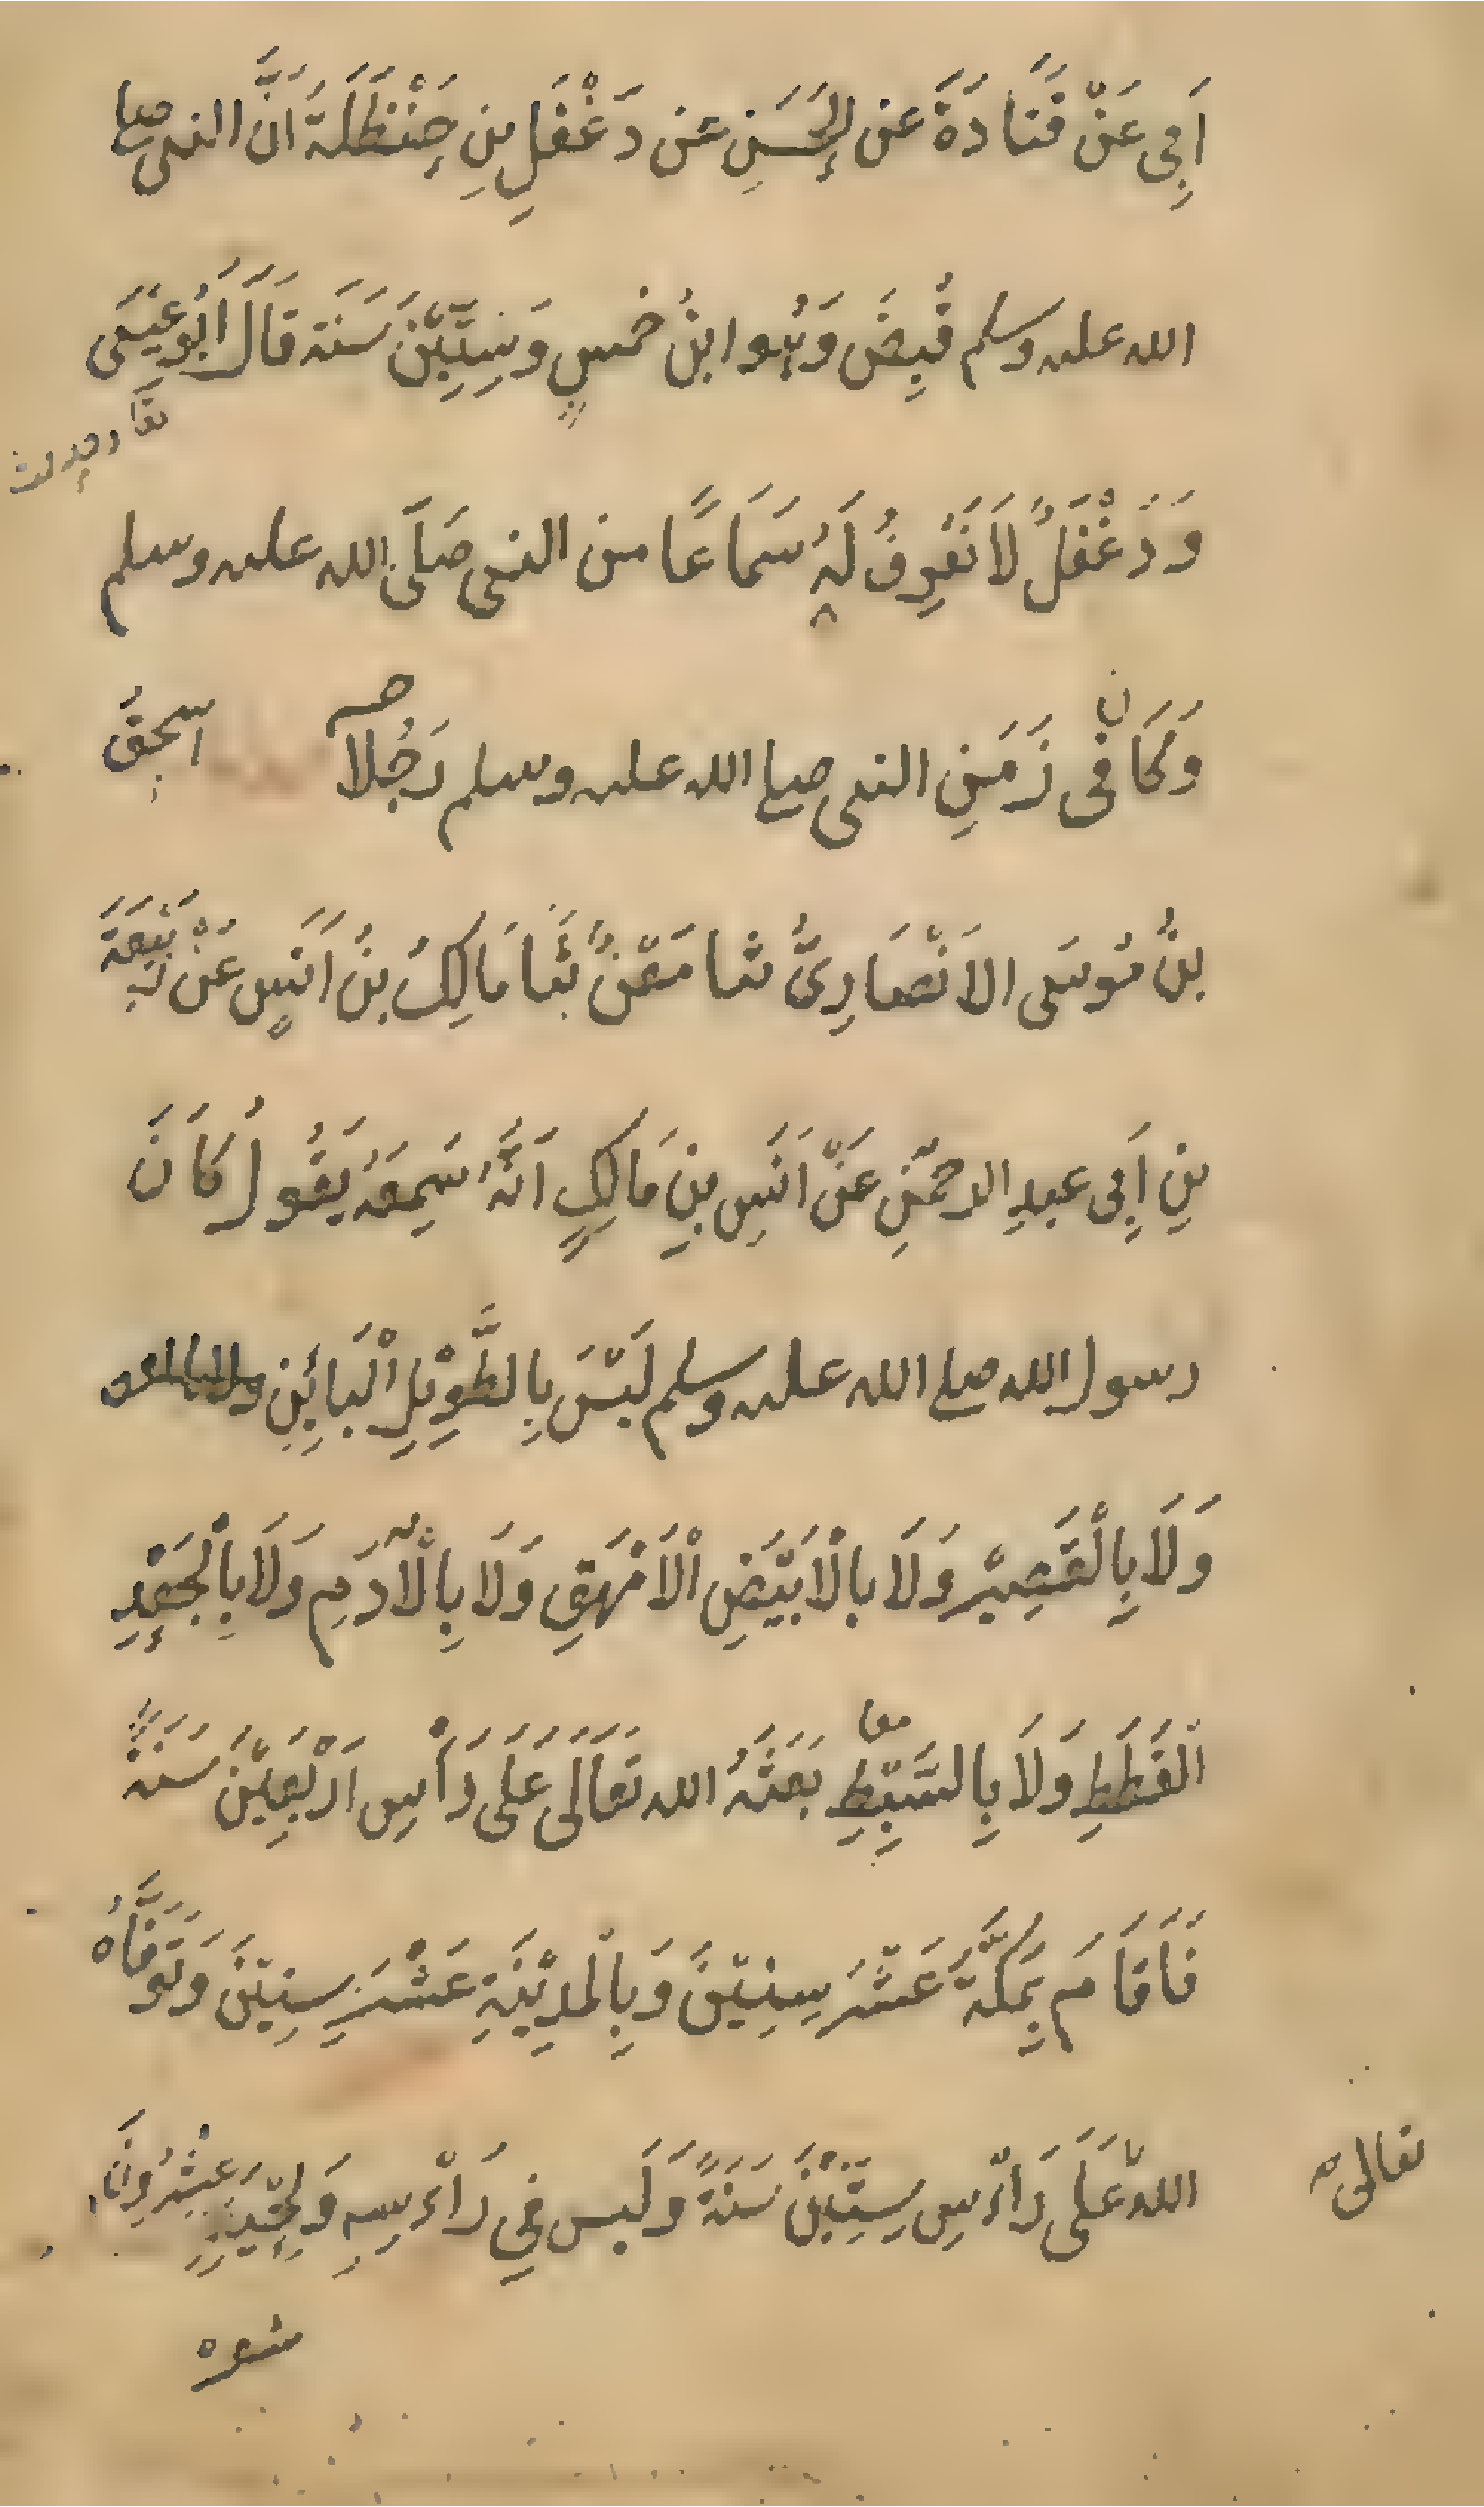 اَبِى عَنْ قَتَادَةَ عَنِ الْحَسَنِ عَن دَغْفَلِ بنِ حَنْظَلَةَ اَنَّ النبى صلى
الله عليه وسلم قُبِضَ وَهُو ابنُ خمسٍ وَسِتِّيْنَ سَنَة قَالَ اَبُو عِيْسَى
وَدَغْفَلٌ لَا نَعْرِفُ لَهُ سَمَاعًا من النبى صَلَّى الله عليه وسلم
وَكَان فى زَمَنِ النبى صلى الله عليه وسلم رَجُلًا اسحقُ
بنُ مُوسَى الاَنْصَارِىُّ ثنا مَعْنٌ ثَنَا مَالِكُ بنُ اَنَسٍ عَنْ رَبِيْعَةَ
بنِ اَبِى عبدِ الرحمٰنِ عَنْ اَنَسِ بنِ مَالِكٍ اَنَّهُ سَمِعَهُ يَقُولُ كَانَ
رسول الله صلى الله عليه وسلم لَيْسَ بِالطَّوِيْلِ الْبَائِنِ
وَلَا بِالْقَصِيْرِ وَلَا بالْاَبْيَضِ الْاَمْهَقِ وَلَا بِالْآدَمِ وَلَا بِالْجَعْدِ
الْقَطَطِ وَلَا بِالسَّبْطِ معا بَعَثَهُ الله تَعَالَى عَلَى رَأْسِ اَرْبَعِيْنَ سَنَةً
فَاَقَامَ بِمَكَّةَ عَشْرَ سِنِيْنَ وَبِالْمَدِيْنَةِ عَشْرَ سِنِيْنَ وَتَوَفَّاهُ
الله تعالى عَلَى رَأْسِ سِتِّيْنَ سَنَةً وَلَيس فِي رَأْسِهِ وَلِحْيَتِهِ عِشْرُوْنَ
شعره